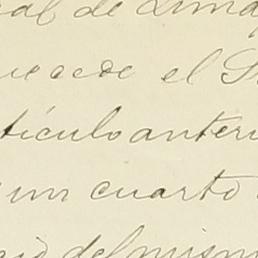 al de Lima
ucede el S
tículo anteri
un cuarto
cio del mism